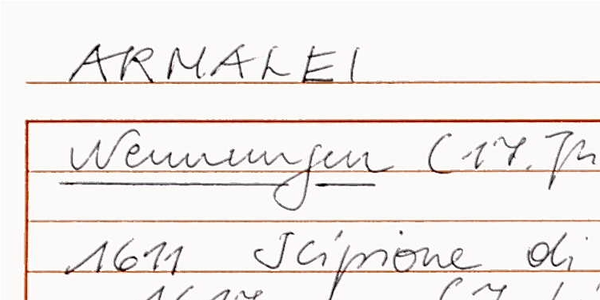 ARMALEI
Nennungen (17. Jh
1611 Scipione di